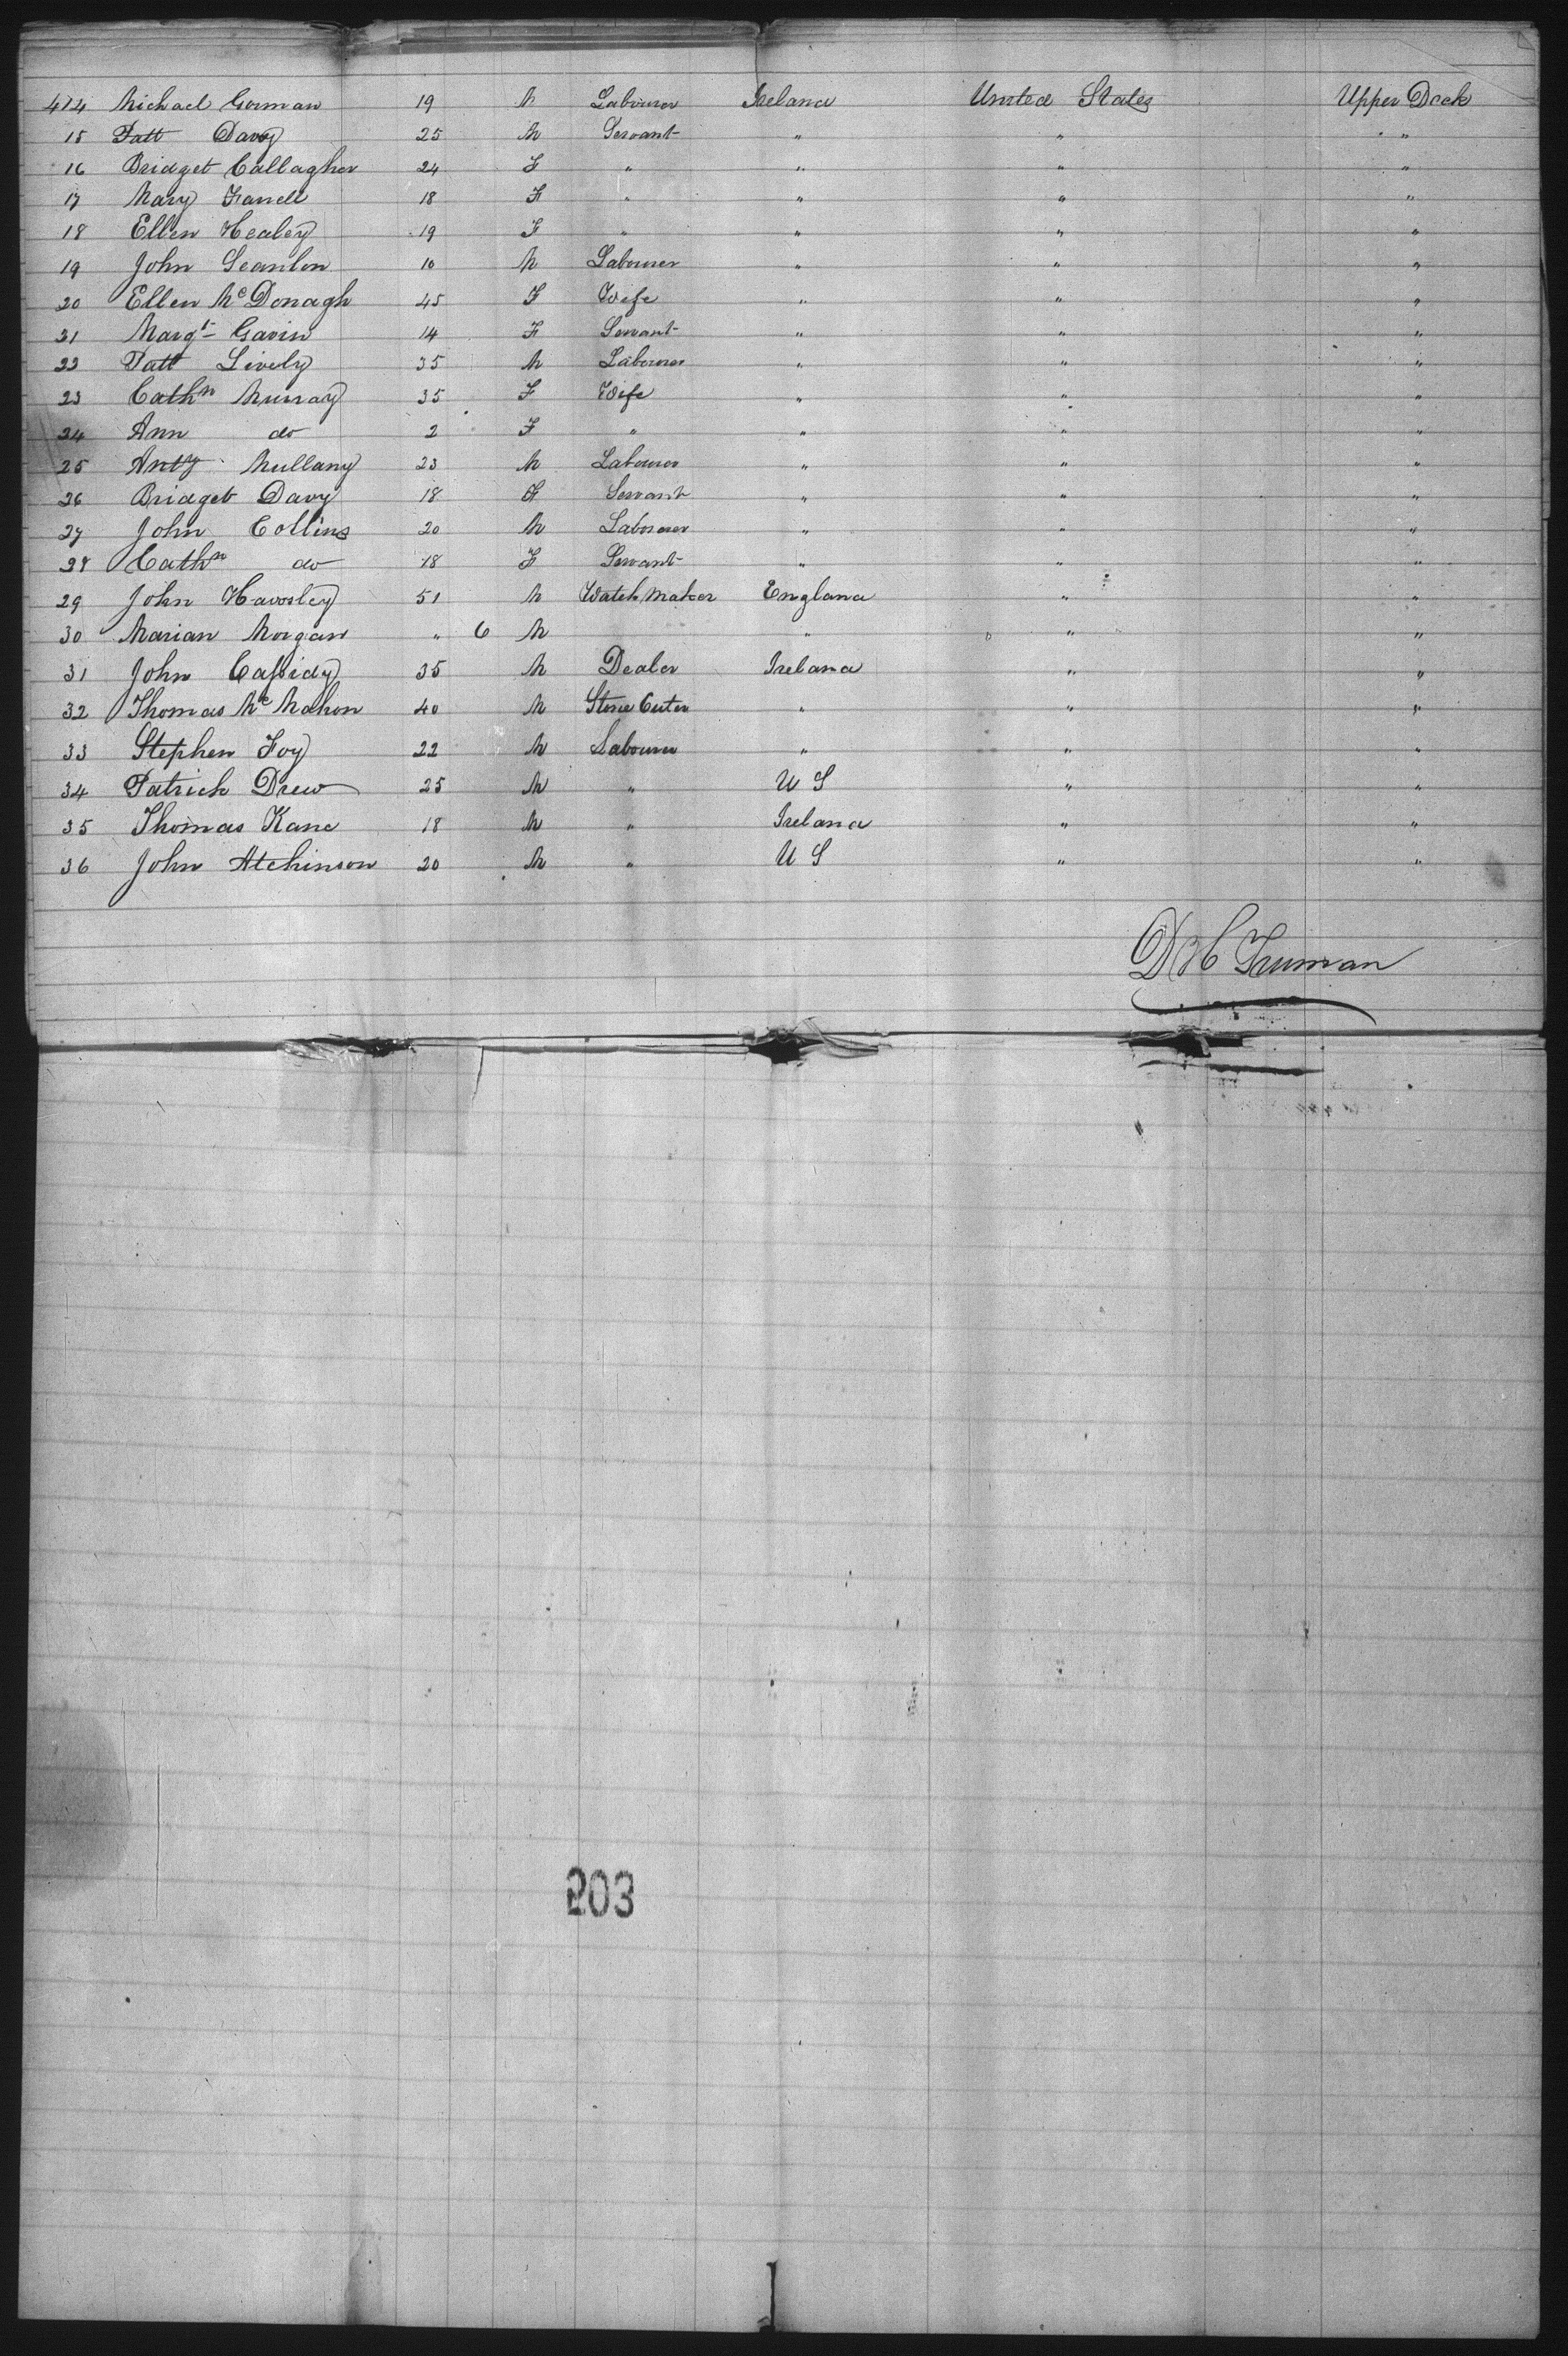 414 Michael Gorman 19 M Labourer Ireland United States Upper Deck
15 Patt Davy 25 M Servant " " "
16 Bridget Callagher 24 F " " " "
17 Mary Farrell 18 F " " " "
18 Ellen Healey 19 F " " " "
19 John Scanlon 10 M Labourer " " "
20 Ellen McDonagh 45 F Wife " " "
21 Margt Gavin 14 F Servant " " "
22 Patt Lively 35 M Labourer " " "
23 Cathn Murray 35 F Wife " " "
24 Ann do 2 F " " " "
25 Anty Mullany 23 M Labourer " " "
26 Bridget Davy 18 F Servant " " "
27 John Collins 20 M Labourer " " "
28 Cathn do 18 F Servant " " "
29 John 51 M Watch Maker England " "
30 Marian Morgan " 6 M " " "
31 John Cassidy 35 M Dealer Ireland " "
32 Thomas McMahon 40 M Stone Cuter " " "
33 Stephen Foy 22 M Labourer " " "
34 Patrick Drew 25 M " U S " "
35 Thomas Kane 18 M " Ireland " "
36 John Atchinson 20 M " U S " "
D H Truman
203